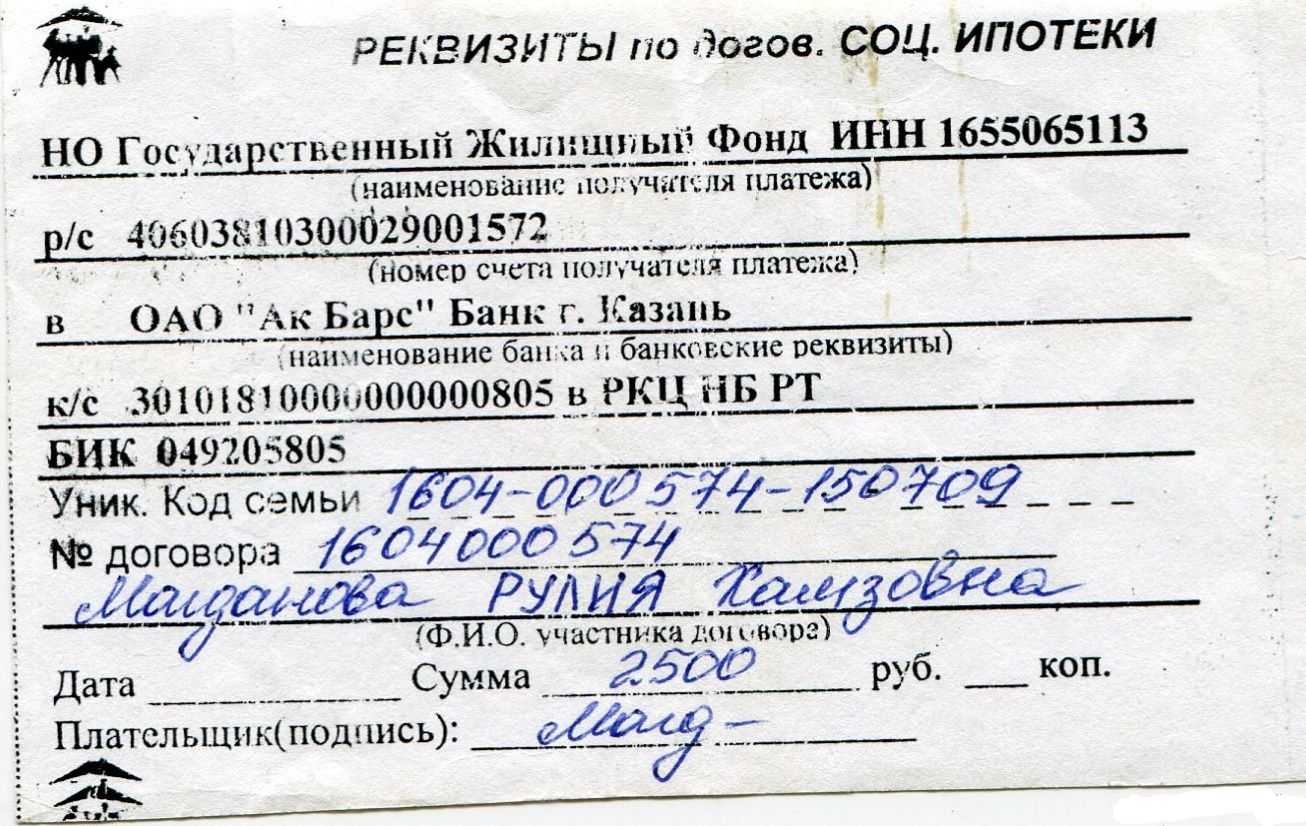 РЕКВИЗИТЫ по догов. СОЦ. ИПОТЕКИ
НО Государственный Жилищный Фонд ИНН 1655065113
(наименование получателя платежа)
р/с 40603810300029001572
(номер счета получателя платежа)
в ОАО "Ак Барс" Банк г. Казань
(наименование банка и банковские реквизиты)
к/с 30101810000000000805 в РКЦ НБ РТ
БИК 049205805
Уник. Код семьи 1604-000574-150709
№ договора 1604000574
Магданова РУЛИЯ Хамзовна
(Ф.И.О. участника договора)
Дата Сумма 2500 руб. коп.
Плательщик(подпись): Магд-